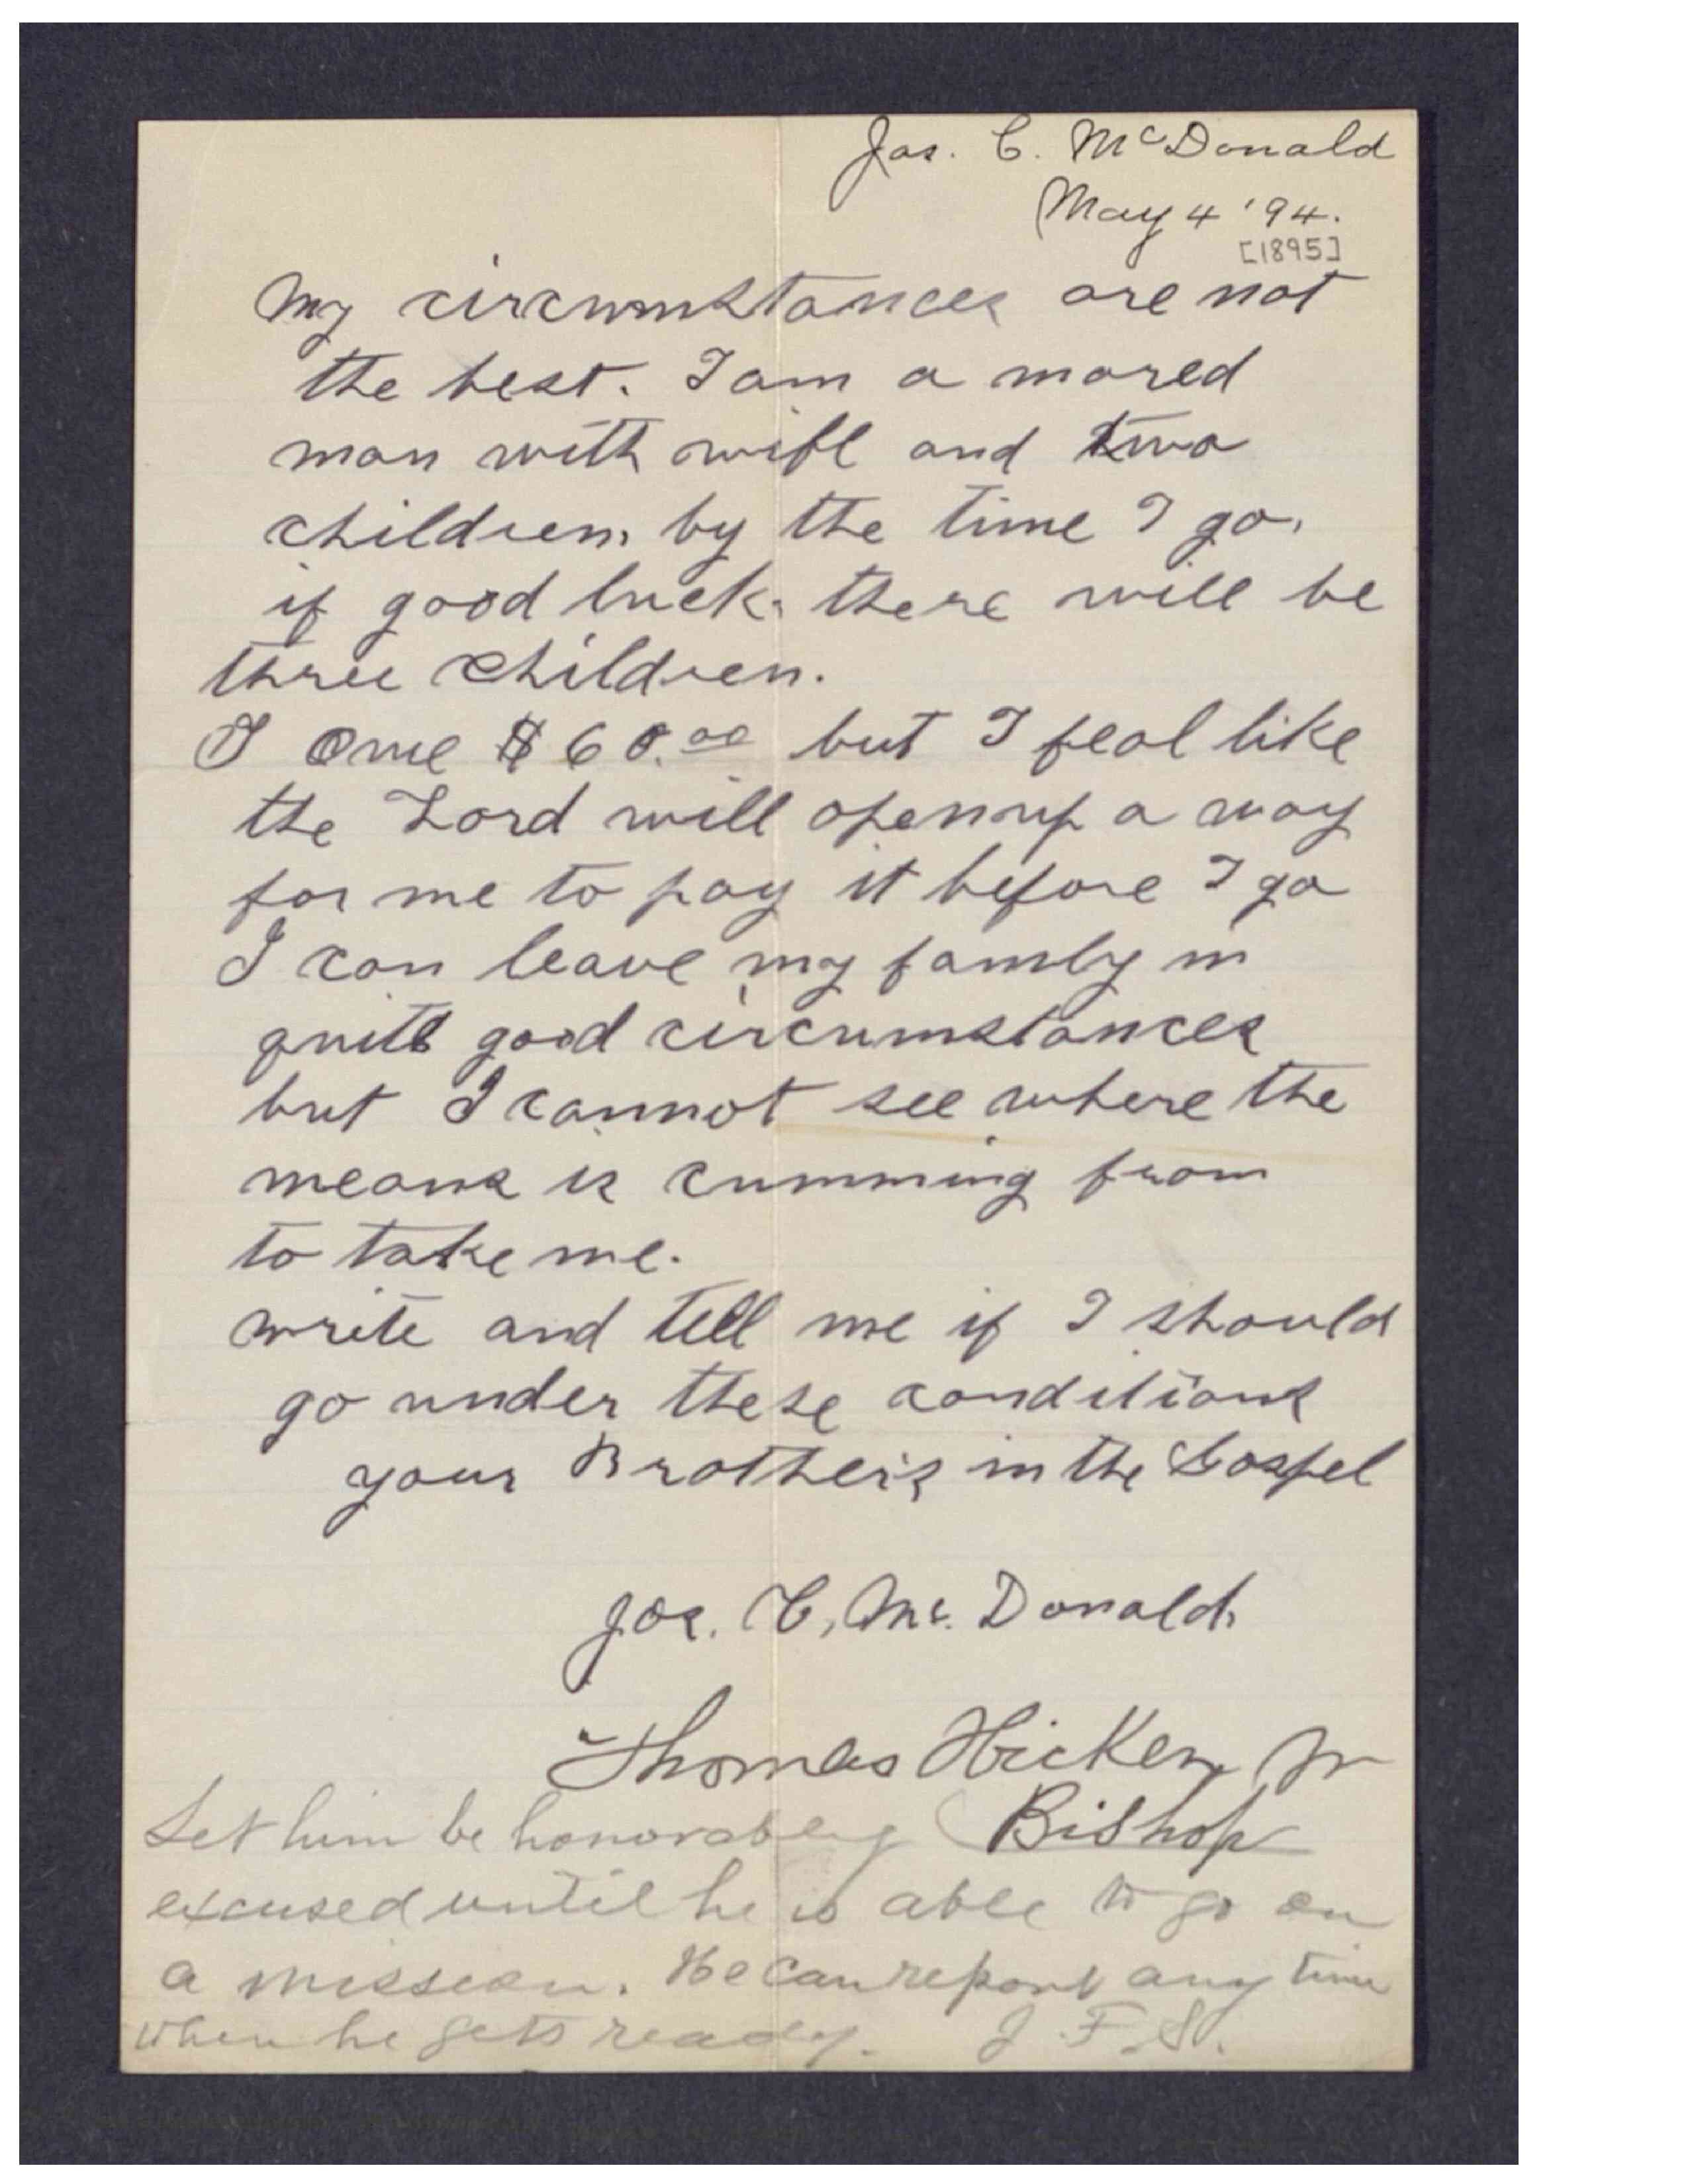 Jas. C. McDonald
May 4 '94.
[1895]
My circumstances are not
the best. I am a mared
man with wife and two
children. by the time I go.
if good luck. there will be
three children.
I owe $60.00 but I feal like
the Lord will open up a way
for me to pay it before I go
I can leave my family in
quite good circumstances
but I cannot see where the
means is cumming from
to take me.
write and tell me if I should
go under these conditions
your Brother's in the Gospel
Jos. C, Mc. Donald.
Thomas Hicken Jr
Bishop
Let him be honorably
excused until he is able to go on
a mission. He can report any time
when he gets ready. J. F. S.